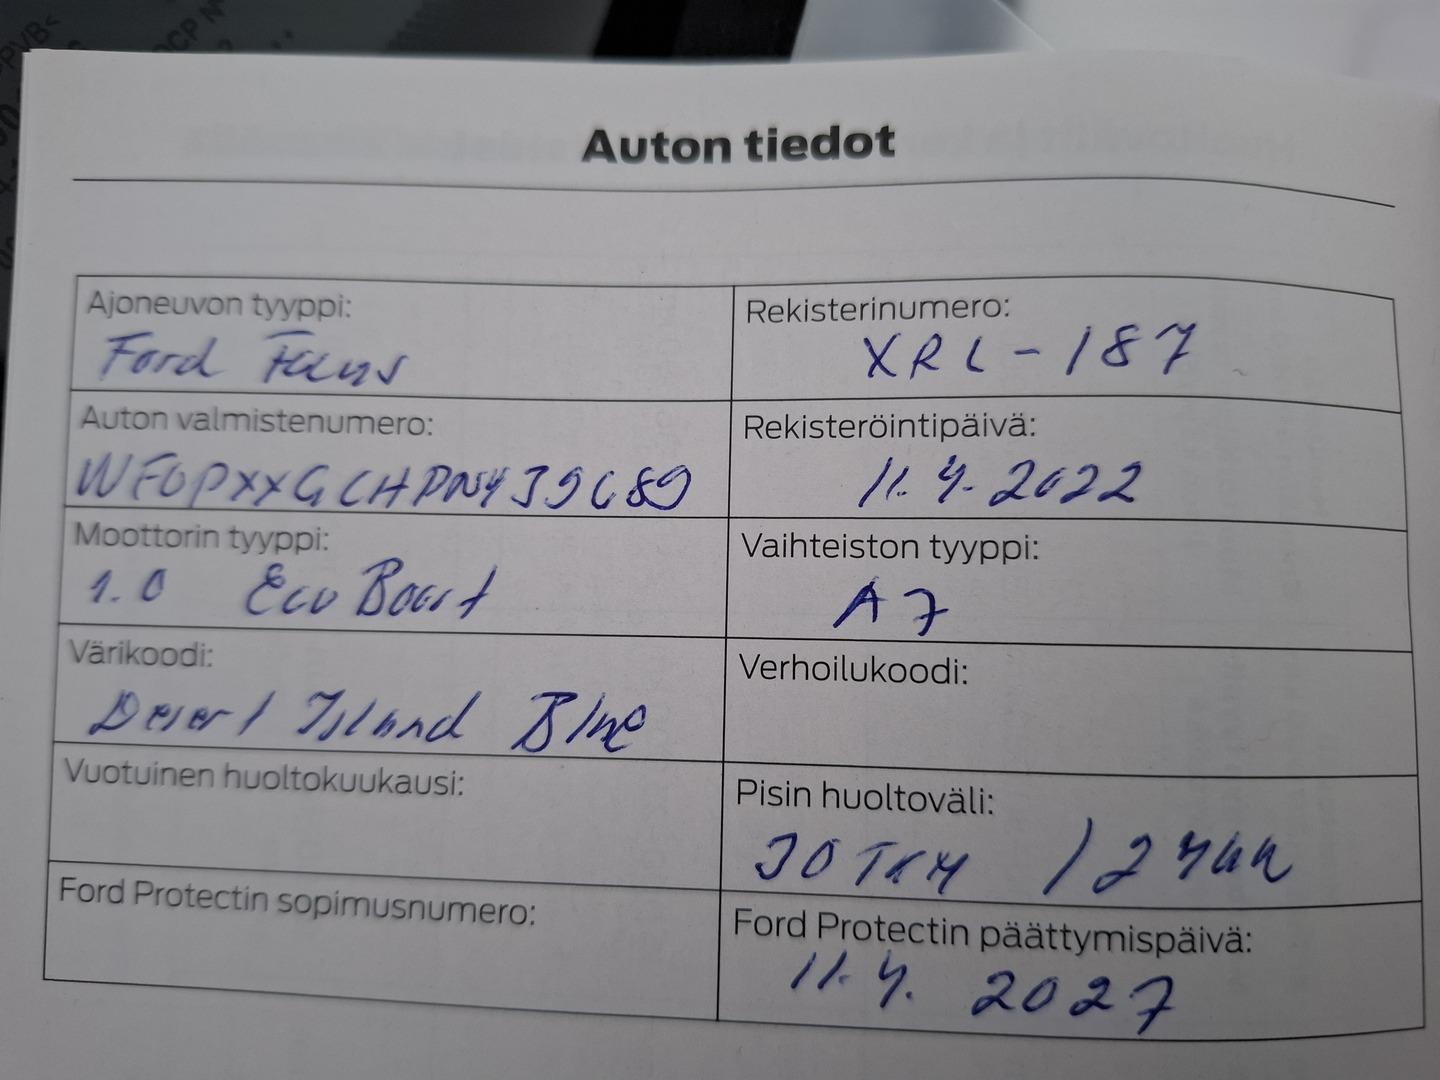 Auton tiedot
Ajoneuvon tyyppi:
Ford Focus
Rekisterinumero:
XRL-187
Auton valmistenumero:
WF0PXXGCHPNY39689
Rekisteröintipäivä:
11.4.2022
Moottorin tyyppi:
1.0 EcoBoost
Vaihteiston tyyppi:
A7
Värikoodi:
Desert Island Blue
Verhoilukoodi:
Vuotuinen huoltokuukausi:
Pisin huoltoväli:
30 TKM / 24KK
Ford Protectin sopimusnumero:
Ford Protectin päättymispäivä:
11.4. 2027